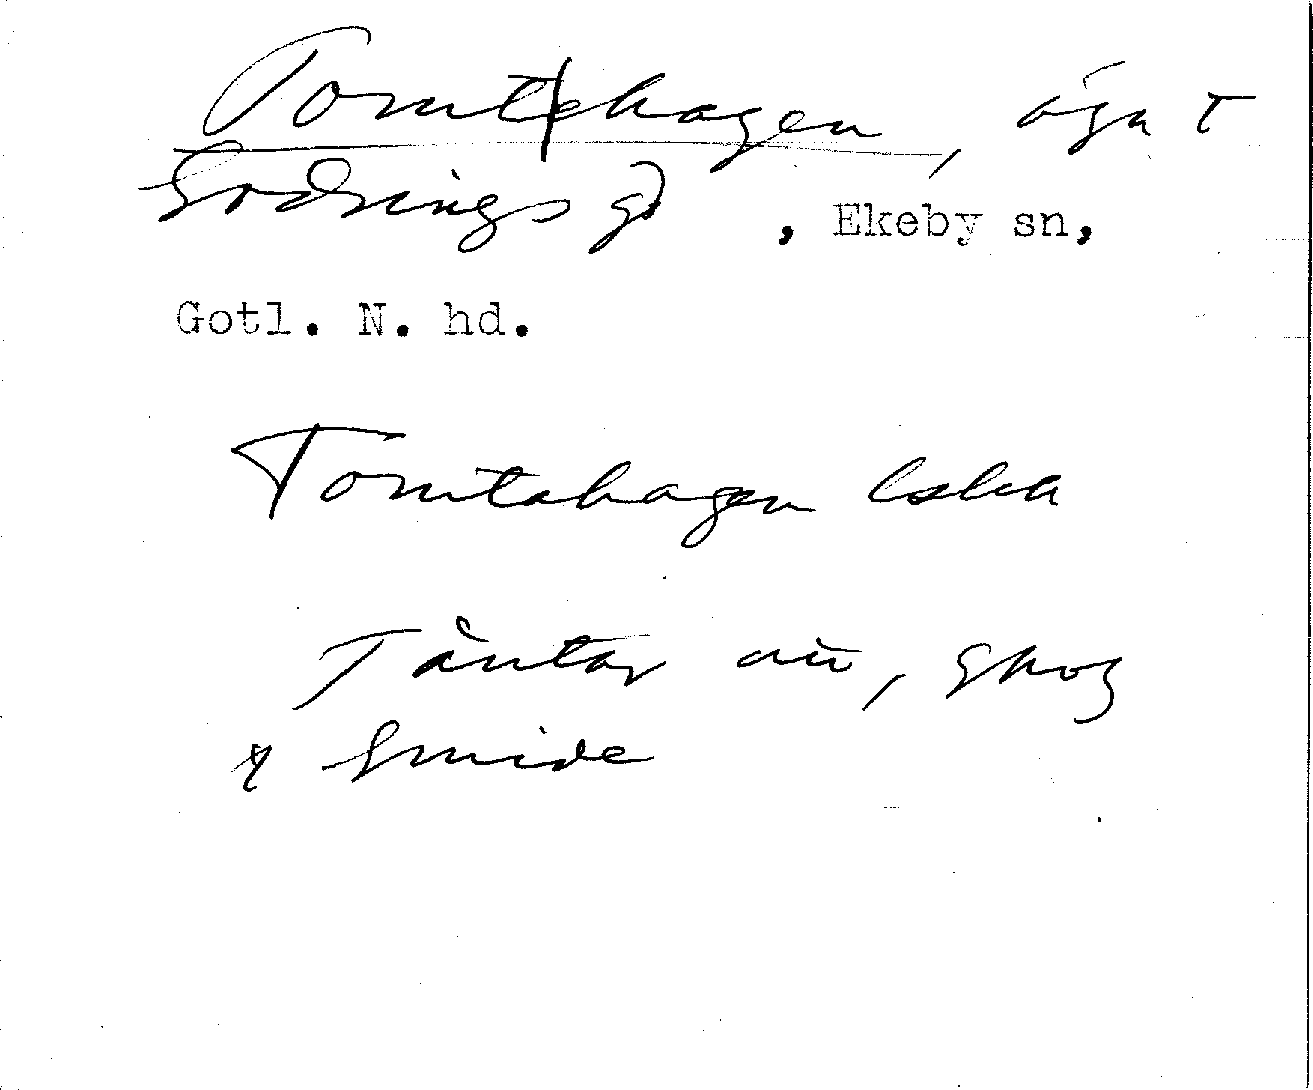 Tomtehagen, äga t
Sodrings gd, Ekeby sn,
Gotl. N. hd.
Tomtehagen
Täntar, skog
Smide